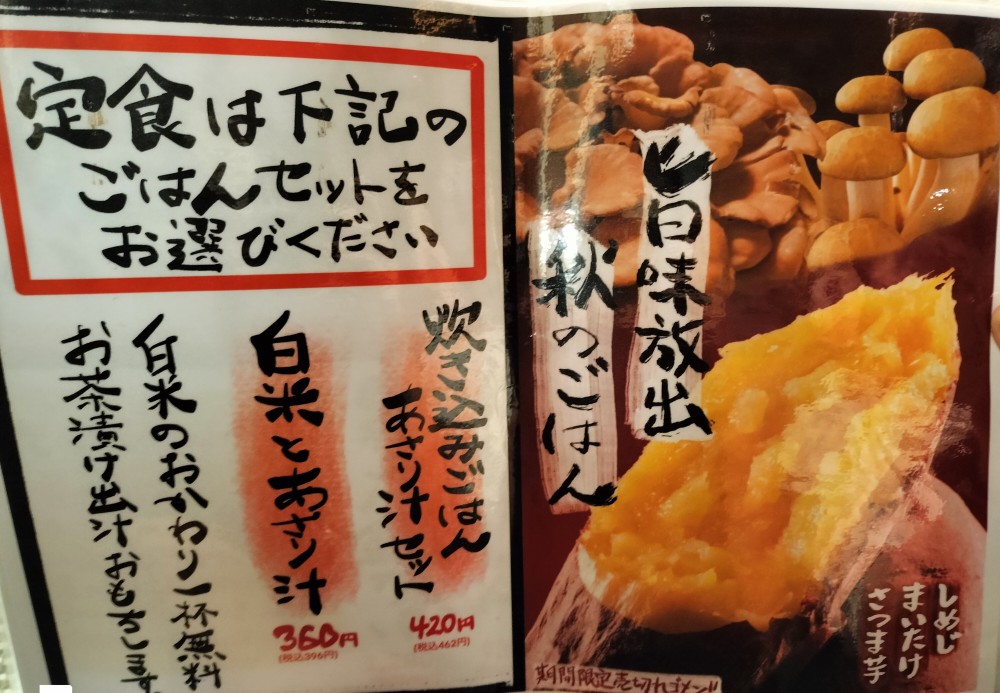 定食は下記の
ごはんセットを
お選びください
炊き込みごはん
あさり汁セット
420円
(税込462円)
白米とあさり汁
360円
(税込396円)
白米のおかわり一杯無料
お茶漬け出汁おもちします
旨味放出
秋のごはん
しめじ
まいたけ
さつま芋
期間限定売切れゴメン!!